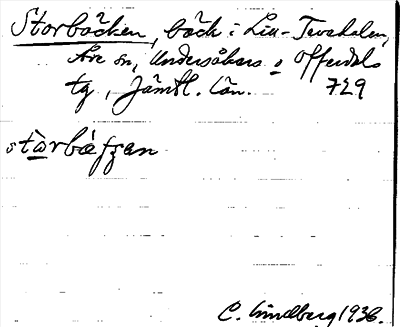 Storbäcken, bäck i Lill-Tevedalen,
Åre sn, Undersåkers o Offerdals
tg, Jämtl. län. 729
stɷ̀rbáfʒan
C. Lindberg 1936.